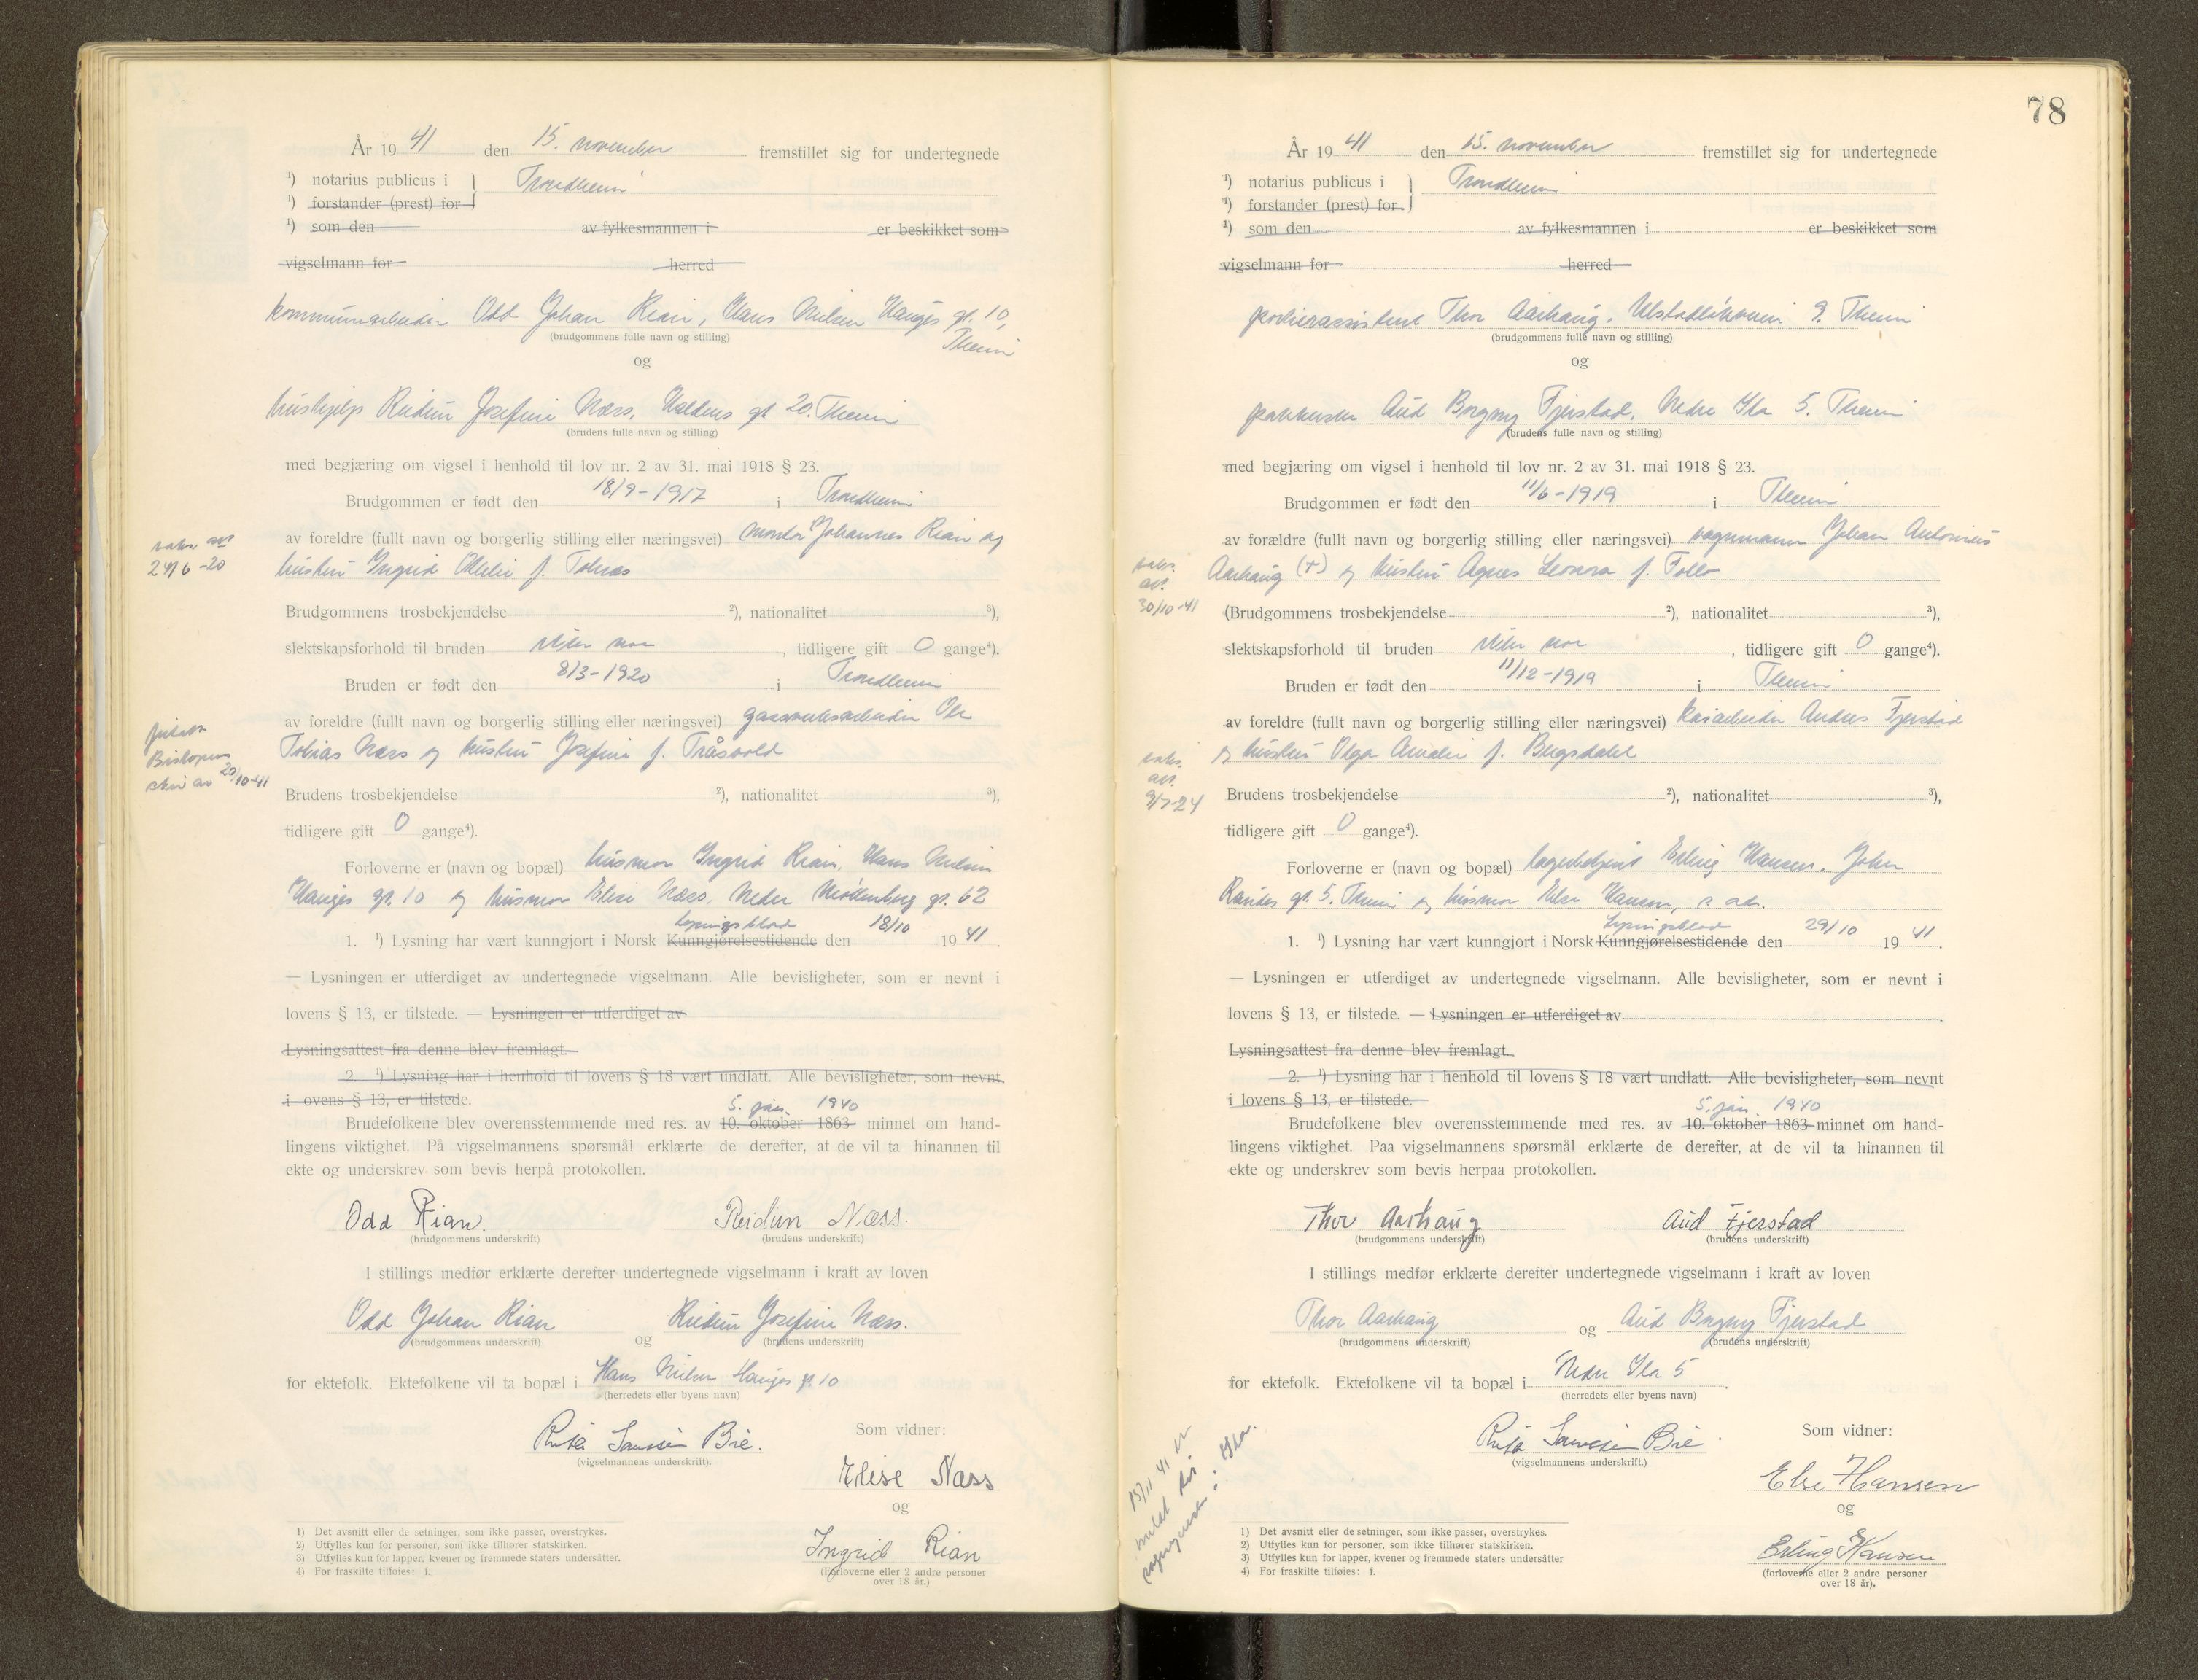 År 19 41 den 15. november fremstillet sig for undertegnede
¹) notarius publicus i Trondheim
¹) forstander (prest) for
¹) som den av fylkesmannen i er beskikket som
vigselmann for herred
kommunearbeider Odd Johan Rian, Hans Nilsen Hauges gt. 10,
Theim
(brudgommens fulle navn og stilling)
og
hushjelp Reidun Josefine Næss, gt 20. Theim
(brudens fulle navn og stilling)
med begjæring om vigsel i henhold til lov nr. 2 av 31. mai 1918 § 23.
Brudgommen er født den 18/9-1917 i Trondheim
av foreldre (fullt navn og borgerlig stilling eller næringsvei) montør Johannes Rian og
hustru Ingrid f. Tobias
Brudgommens trosbekjendelse ²), nationalitet ³),
slektskapsforhold til bruden , tidligere gift 0 gange⁴).
Bruden er født den 8/3-1920 i Trondheim
av foreldre (fullt navn og borgerlig stilling eller næringsvei) gassverksarbeider Ole
Tobias Næss og hustru Josefine f. Tråsvold
Brudens trosbekjendelse ²), nationalitet ³),
tidligere gift 0 gange⁴).
Forloverne er (navn og bopæl) husmor Ingrid Rian, Hans Nilsen
Hauges gt. 10 og husmor Elise Næss, Nedre Møllenberg gt. 62
Lysningsblad
1. ¹) Lysning har vært kunngjort i Norsk Kunngjørelsestidende den 18/10 19 41.
— Lysningen er utferdiget av undertegnede vigselmann. Alle bevisligheter, som er nevnt i
lovens § 13, er tilstede. — Lysningen er utferdiget av
Lysningsattest fra denne blev fremlagt.
2. ¹) Lysning har i henhold til lovens § 18 vært undlatt. Alle bevisligheter, som nevnt
i ovens § 13, er tilstede.
5. jan. 1940
Brudefolkene blev overensstemmende med res. av 10. oktober 1863 minnet om hand-
lingens viktighet. På vigselmannens spørsmål erklærte de derefter, at de vil ta hinannen til
ekte og underskrev som bevis herpå protokollen.
Odd Rian. Reidun Næss.
(brudgommens underskrift) (brudens underskrift)
I stillings medfør erklærte derefter undertegnede vigselmann i kraft av loven
Odd Johan Rian og Reidun Josefine Næss.
(brudgommens underskrift) (brudens underskrift)
for ektefolk. Ektefolkene vil ta bopæl i Hans Nilsen Hauges gt 10
(herredets eller byens navn)
Bie. Som vidner:
(vigselmannens underskrift).
Elise Næss
og
Ingrid Rian
(Forloverne eller 2 andre personer
over 18 år.)
1) Det avsnitt eller de setninger, som ikke passer, overstrykes.
2) Utfylles kun for personer, som ikke tilhører statskirken.
3) Utfylles kun for lapper, kvener og fremmede staters undersåtter.
4) For fraskilte tilføies: f.
vaks. att
24/6-20
Biskopens
skriv av 20/10-41
78
År 19 41 den 15. november fremstillet sig for undertegnede
¹) notarius publicus i Trondheim
¹) forstander (prest) for
¹) som den av fylkesmannen i er beskikket som
vigselmann for herred
Thor Aarhaug, 9. Theim
(brudgommens fulle navn og stilling)
og
Aud Borgny Fjerstad, Nedre Ila 5. Theim
(brudens fulle navn og stilling)
med begjæring om vigsel i henhold til lov nr. 2 av 31. mai 1918 § 23.
Brudgommen er født den 11/6-1919 i Theim
av forældre (fullt navn og borgerlig stilling eller næringsvei) vognmann Johan Antonius
Aarhaug (+) og hustru Agnes Leonora f. Follo
(Brudgommens trosbekjendelse ²), nationalitet ³),
slektskapsforhold til bruden , tidligere gift 0 gange⁴).
Bruden er født den 11/12-1919 i Theim
av foreldre (fullt navn og borgerlig stilling eller næringsvei) kaiarbeider Anders Fjerstad
og hustru Olga Amalie f. Bergsdahl
Brudens trosbekjendelse ²), nationalitet ³),
tidligere gift 0 gange⁴).
Forloverne er (navn og bopæl) lagerbetjent Erling Hansen, John
gt. 5. Theim og husmor Else Hansen, s. adr.
Lysningsblad
1. ¹) Lysning har vært kunngjort i Norsk Kunngjørelsestidende den 29/10 19 41.
— Lysningen er utferdiget av undertegnede vigselmann. Alle bevisligheter, som er nevnt i
lovens § 13, er tilstede. — Lysningen er utferdiget av
Lysningsattest fra denne blev fremlagt.
2. ¹) Lysning har i henhold til lovens § 18 vært undlatt. Alle bevisligheter, som nevnt
i lovens § 13, er tilstede.
5. jan. 1940
Brudefolkene blev overensstemmende med res. av 10. oktober 1863 minnet om hand-
lingens viktighet. Paa vigselmannens spørsmål erklærte de derefter, at de vil ta hinannen til
ekte og underskrev som bevis herpaa protokollen.
Thor Aarhaug Aud Fjerstad
(brudgommens underskrift) (brudens underskrift)
I stillings medfør erklærte derefter undertegnede vigselmann i kraft av loven
Thor Aarhaug og Aud Borgny Fjerstad
(brudgommens underskrift) (brudens underskrift)
for ektefolk. Ektefolkene vil ta bopæl i Nedre Ila 5.
(herredets eller byens navn)
Bie Som vidner:
(vigselmannens underskrift.)
Else Hansen
og
Erling Hansen
(forloverne eller 2 andre personer
over 18 år).
1) Det avsnitt eller de setninger, som ikke passer, overstrykes.
2) Utfylles kun for personer, som ikke tilhører statskirken.
3) Utfylles kun for lapper, kvener og fremmede staters undersåtter
4) For fraskilte tilføies: f.
vaks.
att.
30/10-41
vaks.
att.
9/7-24
meldt til
sogneprest i Ila.